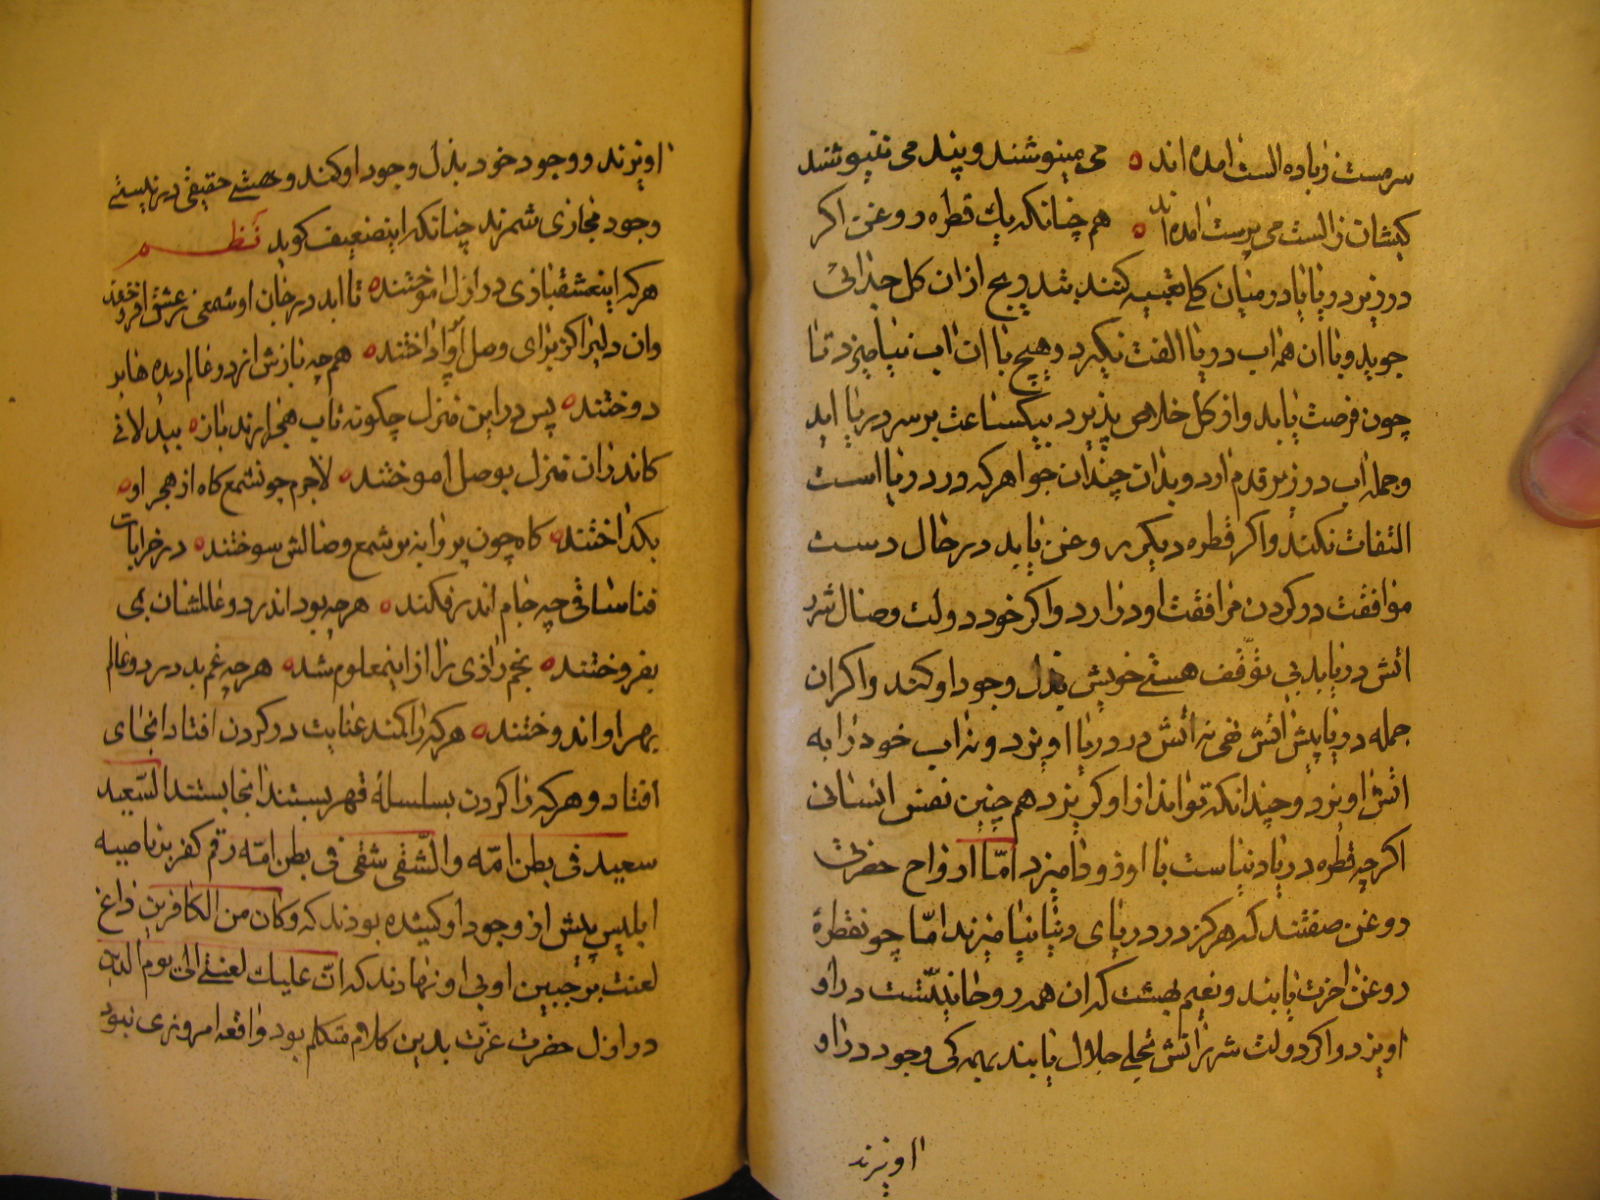 سرمست زباده الست امده اند ه می مینوشند و پند می ننیوشند
کیشان ز الست می پرست امده اند ه هم چنانکه یك قطره روغن اکر
در زیر دریا یا در میان کل تعبیه کنند بتدریج ازان کل جدائی
جوید و با ان هم اب دریا الفت نکیرد و هیچ با ان اب نیامیزد تا
چون فرصت یابد و از کل خلاص پذیرد بیکساعت بر سر دریا اید
و جمله اب در زیر قدم ارد و بذان چندان جواهر که در دریا است
التفات نکند و اکر قطره دیکر روغن یابد در حال دست
موافقت در کردن مرافقت او در ارد و اکر خود دولت وصال شرر
اتش دریابد بی توقف هستی خویش بذل وجود او کند و اکر ان
جمله دریا پیش اتش نهی نه اتش در دریا اویزد و نه اب خود را به
اتش اویزد و چندانکه تواند از او کریزد هم چنین نفس انسانی
اکر چه قطره دریا دنیاست با او زود امیزد امّا ارواح حضرت
روغن صفتند که هرکز در دریای دنیا نیامیزند امّا چو نقطرهٔ
روغن اخرت یابند و نعیم بهشت که ان همه روحانیّتست در او
اویزد و اکر دولت شرر اتش تجلی جلال یابند بهمکی وجود در او
اویزند
اویزند و وجود خود بذل وجود او کنند و هستی حقیقی در نیستی
وجود مجازی شمرند چنانکه اینضعیف کوید نظم
هر که اینعشقبازی در ازل اموختند ه تا ابد در جان او شمعی ز عشق افروختند
وان دلیرا کز برای وصل او پرداختند ه هم چه بازش از دو عالم دیده ها بر
دوختند ه پس در این منزل چکونه تاب هجر ارند باز ه بیدلانی
کاندران منزل بوصل اموختند ه لاجرم چونشمع کاه از هجر او ه
بکداختند ه کاه چون پروانه بر شمع وصالش سوختند ه در خرابات
فنا ساقی چه جام اندر فکند ه هر چه بود اندر دو عالمشان بمی
بفروختند ه نجم رازی را از اینمعلوم شد ه هر چه غم بد در دو عالم
بهر او اندوختند ه هر که را کمند عنایت در کردن افتاد انجای
افتاد و هر که را کردن بسلسلهٔ قهر بستند انجا بستند السّعید
سعید فی بطن امّه والشّقی شقی فی بطن امّه رقم کفر بر ناصیه
ابلیس پیش از وجود او کشیده بودند که وکان من الکافرین داغ
لعنت بر جبین او بی او نهادند که انّ علیك لعنتی الی یوم الدین
در ازل حضرت عزّت بدین کلام متکلم بود واقعه امروزی نبود